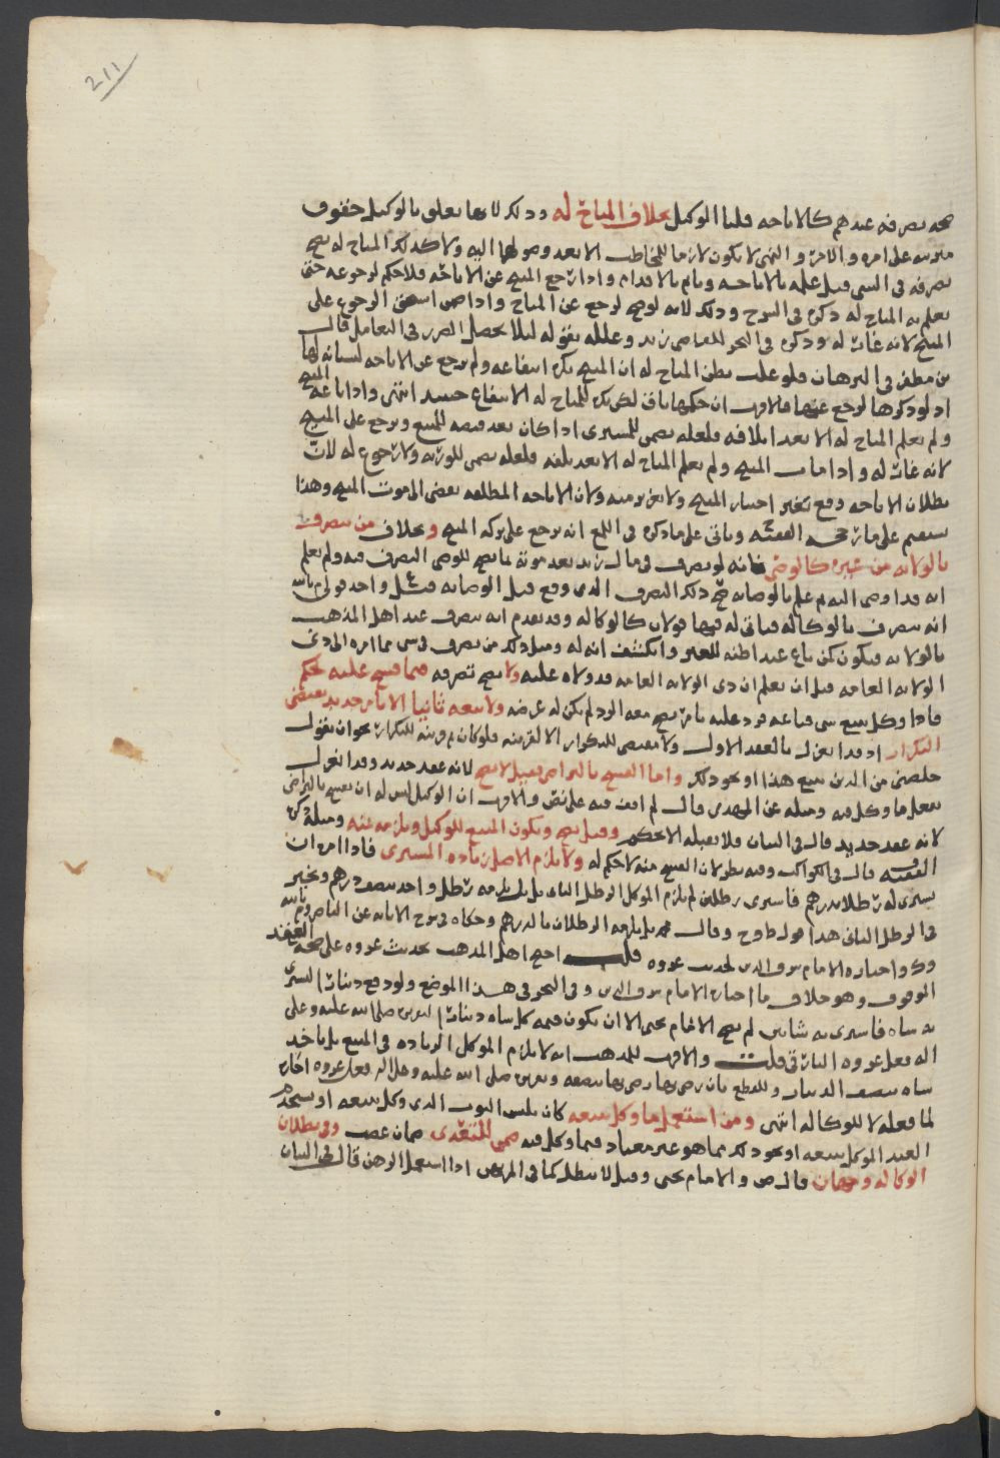 211
صحه تصرفه عندهم كالاباحه قلنا الوكيل بخلاف المباح له وذلك لانها تعلق بالوكيل حقوق
على امره والامر والنهي لا يكون لازما للمخاطب الا بعد وصولهما اليه ولا كذلك المباح له يصح
تصرفه في الشي قبل علمه بالاباحه وياثم بالاقدام واذا رجع المبيح عن الاباحه فلا حكم لرجوعه حتى
يعلم به المباح له ذكره في الشرح وذلك لانه لو صح لرجع عن المباح واذا ضمن استحق الرجوع على
المبيح لانه غار له وذكره في البحر للقاضي زيد وعلله بقوله لئلا يحصل الضرر في التعامل قال
بن مظفر في البرهان فلو غلب بظن المباح له ان المبيح يكره انتفاعه ولم يرجع عن الاباحه لنسيانه لها
اذ لو ذكرها لرجع عنها فالاقرب ان حكمها باق لكن يكره للمباح له الانتفاع حينئذ انتهى واذا باعه المبيح
ولم يعلم المباح له الا بعد اتلافه فلعله يضمن للمشتري اذا كان بعد قبضه للمبيع ويرجع على المبيح
لانه غار له واذا مات المبيح ولم يعلم المباح له الا بعد تلفه فلعله يضمن للورثه ولا رجوع له لان
بطلان الاباحه وقع بغير اختيار المبيح ولا تغرير منه ولان الاباحه المطلقه تقضي الى موت المبيح وهذا
يستقيم على ما رجحه الفقيه وياتي على ما ذكره في اللمع انه يرجع على تركه المبيح وبخلاف من تصرف
بالولايه من غيره كالوصي فانه لو تصرف في مال زيد بعد موته بما يصح للوصي التصرف فيه ولم يعلم
انه قد اوصى اليه ثم علم بالوصايه صح ذلك التصرف الذي وقع قبل الوصايه قول واحد
انه تصرف بالوكاله فياتي له فيها قولان كالوكاله وقد تقدم انه تصرف عند اهل المذهب
بالولايه فيكون كمن باع عبدا ظنه للغير وانكشف انه له ومثل ذلك من تصرف في شي مما امره الى ذي
الولايه العامه قبل ان يعلم ان ذي الولايه العامه قد ولاه عليه ولا يصح تصرفه فيما فسخ عليه بحكم
فاذا وكل ببيع شي فباعه فرد عليه بامر يصح معه الرد لم يكن له عرضه ولا بيعه ثانيا الا بامر جديد يقتضي
التكرار اذ قد انعزل بالعقد الاول ولا مقتضى للتكرار الا لقرينه فلو كان ثم قرينه للتكرار نحو ان يقول
خلصني من الدين ببيع هذا او نحو ذلك واما الفسخ بالتراضي فقيل لا يصح لانه عقد جديد وقد انعزل
بفعل ما وكل فيه ومثله عن المهدي قال لم اقف فيه على نص والاقرب ان الوكيل ليس له ان يفسخ بالتراضي
لانه عقد جديد قال في البيان فلا يقيله الا بحكم وقيل يصح ويكون المبيع للوكيل ويلزمه ثمنه ومثله ذكره
الفقيه قال في الكواكب وفيه نظر لان الفسخ منه لا حكم له ولا يلزم الاصل زياده المشتري فاذا امره ان
يشتري له رطلا بدرهم فاشترى رطلين لم يلزم الموكل الرطل الثاني بل يلزمه رطل واحد بنصف درهم ويخير
في الرطل الثاني هذا قول ط وح وقال محمد بل يلزمه الرطلان بالدرهم وحكاه في شرح الابانه عن الناصر
وك واختاره الامام شرف الدين لحديث عروه قلت احتج اهل المذهب بحديث عروه على صحه العقد
الموقوف وهو خلاف ما اختاره الامام شرف الدين وفي البحر في هذا الموضع ولو دفع دينارا ليشتري
به شاه فاشترى به شاتين لم يصح الامام يحيى الا ان يكون قيمه كل شاه دينارا لتقريره صلى الله عليه وعلى
اله فعل عروه البارقي قلت والاقرب للمذهب انه لا يلزم الموكل الزياده في المبيع بل ياخذ
شاه بنصف الدينار وللقطع بان رضي بها رضي بها بنصفه وتقريره صلى الله عليه وعلى اله فعل عروه اجازه
لما فعله لا للوكاله انتهى ومن استعمل ما وكل ببيعه كان يلبس الثوب الذي وكل ببيعه او يستخدم
العبد الموكل ببيعه او نحو ذلك مما هو غير معتاد فيما وكل فيه ضمن للتعدي ضمان غصب وفي بطلان
الوكاله وجهان قال ص والامام يحيى وقيل لا تبطل كما في المرتهن اذا استعمل الرهن قال في البيان